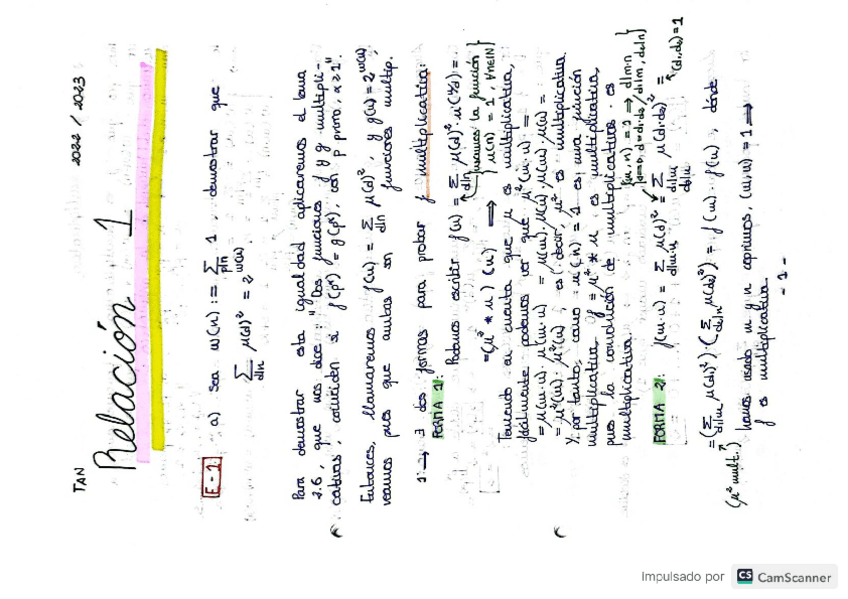 TAN 2022 / 2023
Relación 1
E-1 a) Sea ω(n) := ∑_{p|n} 1 , demostrar que
∑_{d|n} μ(d)² = 2^{ω(n)}
Para demostrar esta igualdad aplicaremos el lema
2.6, que nos dice: "Dos funciones f y g multipli-
cativas, coinciden si f(p^α) = g(p^α), con p primo, α ≥ 1".
Entonces, llamaremos f(n) = ∑_{d|n} μ(d)², y g(n) = 2^{ω(n)},
veamos pues que ambas son funciones multip.
1: → ∃ dos formas para probar f multiplicativa:
FORMA 1: Podemos escribir f(n) = ∑_{d|n} μ(d)² · u(n/d) =
= (μ² * u)(n) → { usamos la función u(n) = 1, ∀n∈ℕ }
Teniendo en cuenta que μ es multiplicativa,
fácilmente podemos ver que μ²(m·n) =
= μ(m·n) · μ(m·n) = μ(m)·μ(n)·μ(m)·μ(n) =
= μ²(m)·μ²(n), es decir, μ² es multiplicativa.
Y, por tanto, como u(n) = 1 es una función
multiplicativa, f = μ² * u, es multiplicativa,
pues la convolución de multiplicativas es
multiplicativa.
(m,n) = 1 ⇒ d|m·n
⇔ d = d₁·d₂ / d₁|m, d₂|n
FORMA 2: f(m·n) = ∑_{d|m·n} μ(d)² = ∑_{d₁|m d₂|n} μ(d₁·d₂)² =
(d₁,d₂)=1
= (∑_{d₁|m} μ(d₁)²)·(∑_{d₂|n} μ(d₂)²) = f(m)·f(n), donde
(μ² mult.) hemos usado m y n coprimos, (m,n) = 1 →
f es multiplicativa.
- 1 -
Impulsado por CS CamScanner